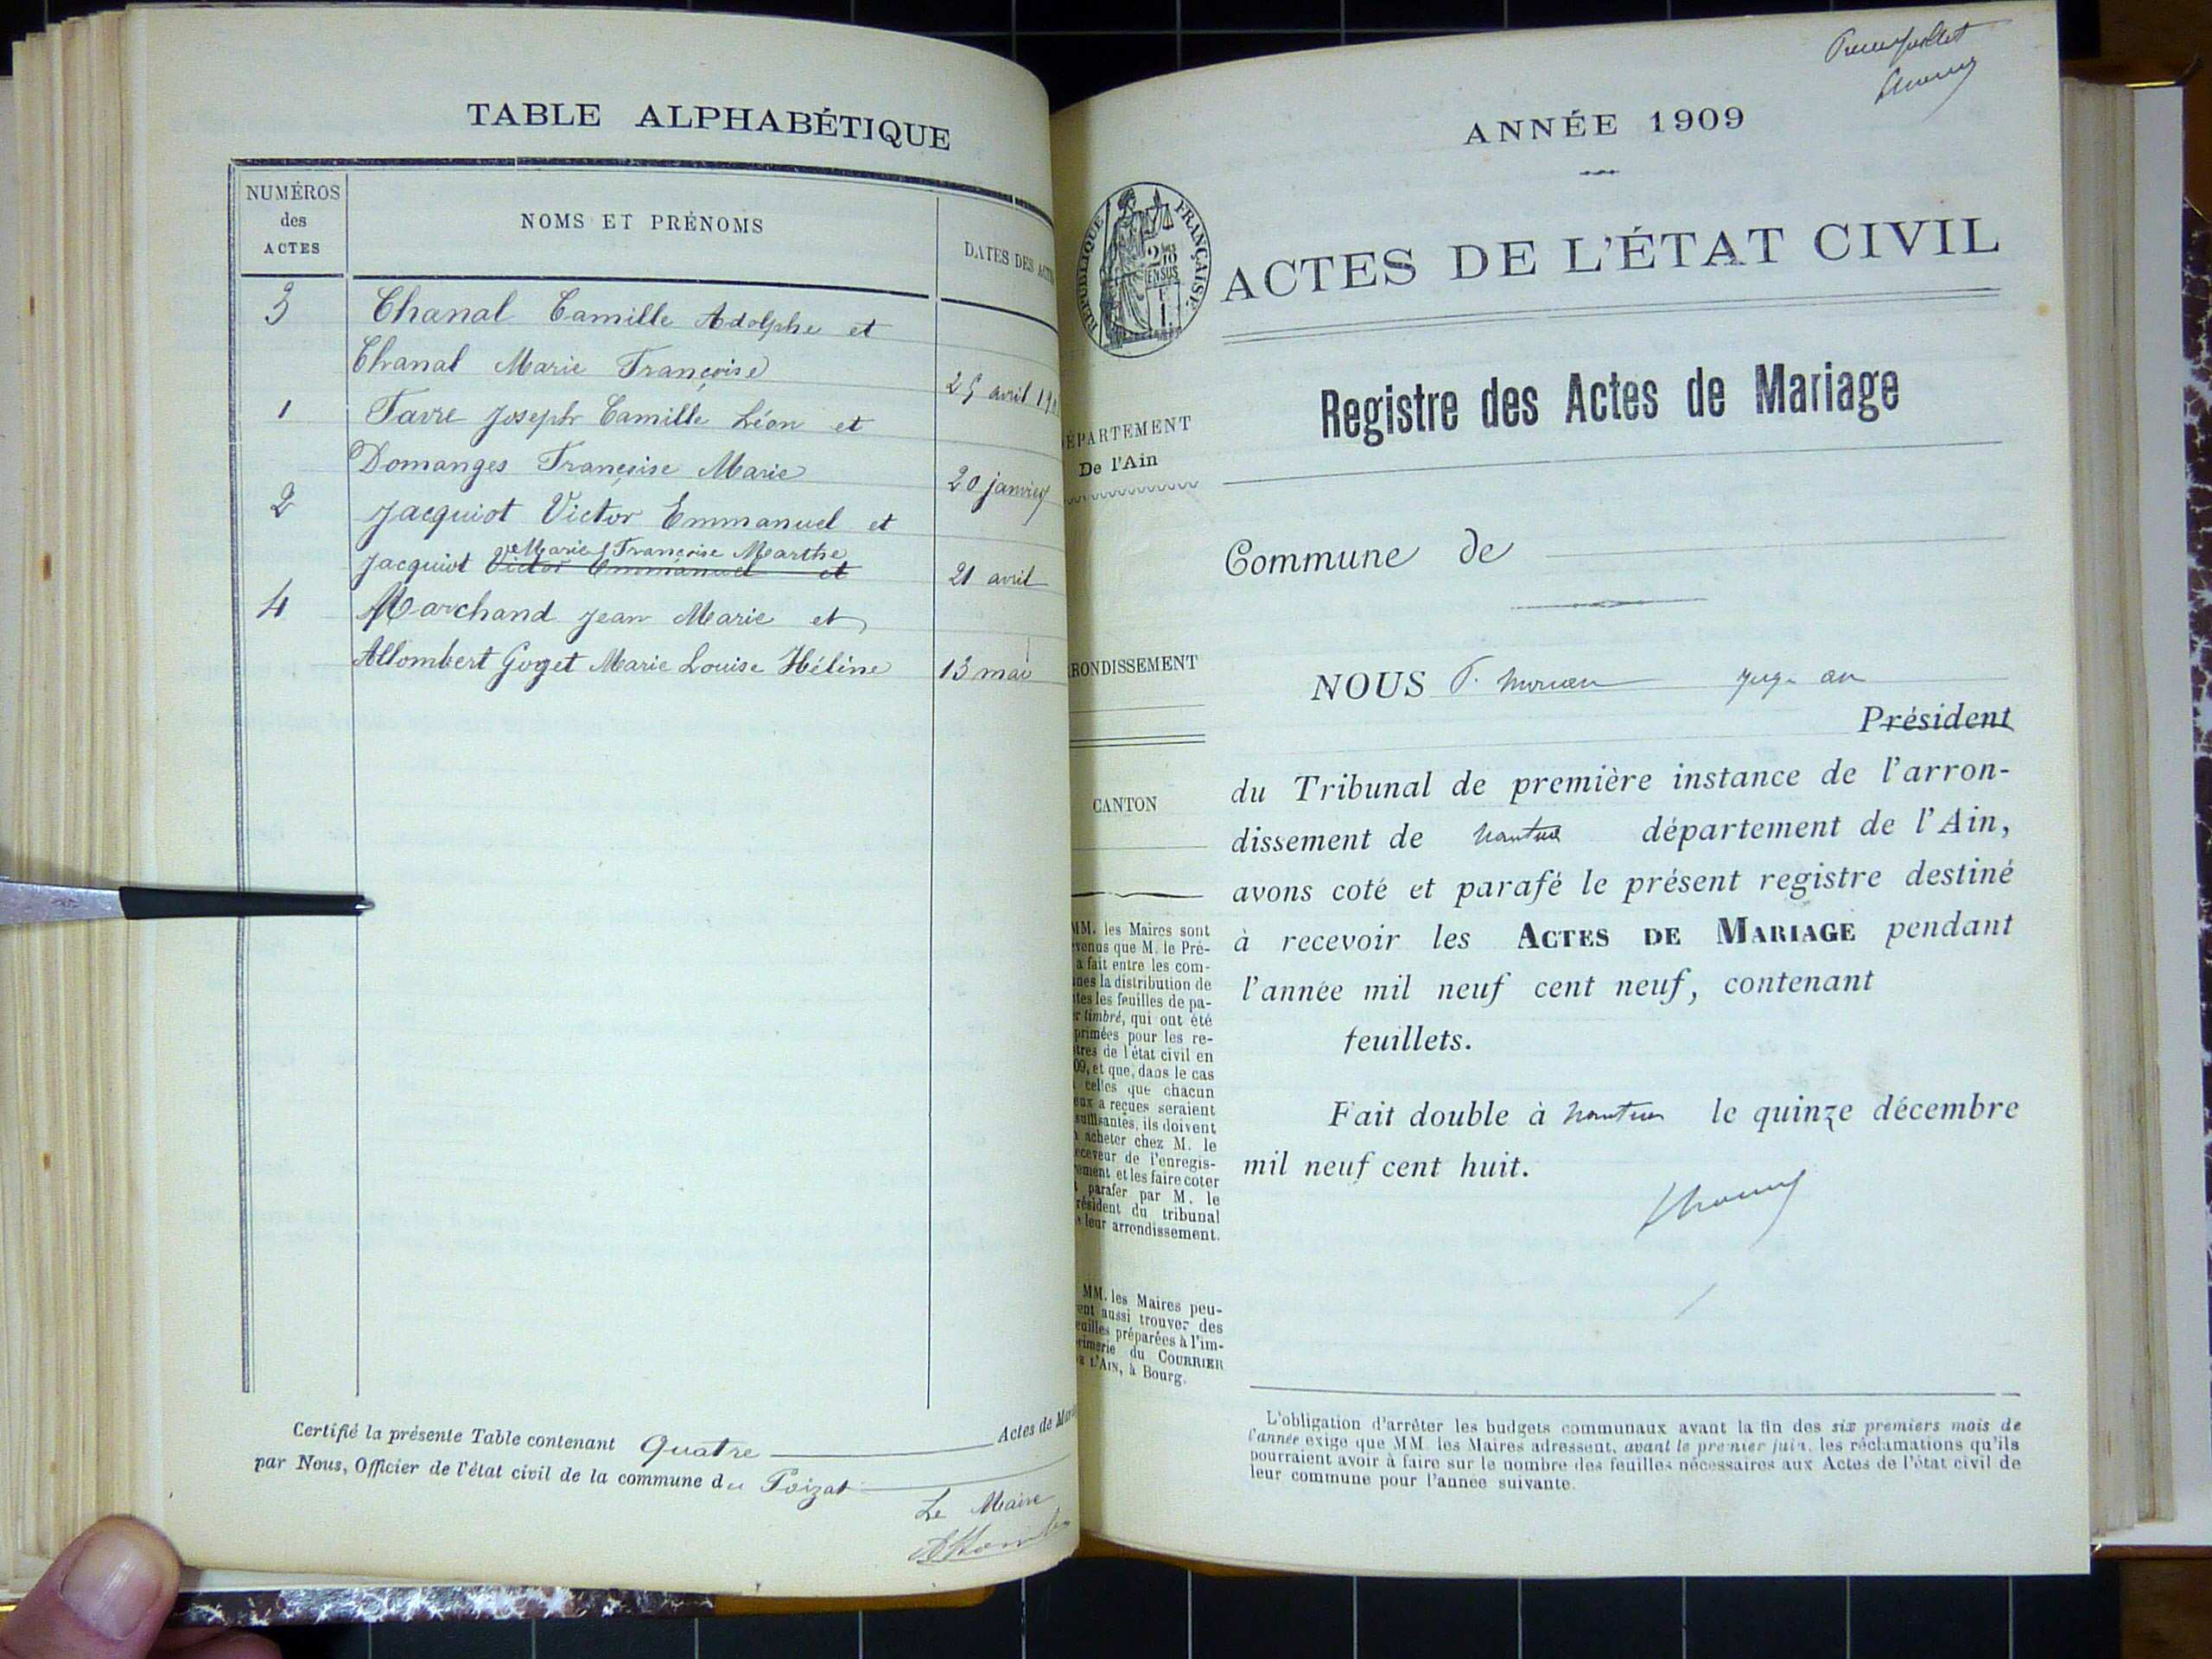 TABLE ALPHABÉTIQUE
NUMÉROS
des
ACTES
NOMS ET PRÉNOMS
DATES DES ACTES
3 Chanal Camille Adolphe et
Chanal Marie Françoise 25 avril 19
1 Favre Joseph Camille Léon et
Domanges Françoise Marie 20 janvier
2 Jacquiot Victor Emmanuel et
Marie Françoise Marthe
Jacquiot Victor Emmanuel et 21 avril
4 Marchand Jean Marie et
Allombert Goget Marie Louise Hélène 13 mai
Certifié la présente Table contenant Quatre Actes de
par Nous, Officier de l'état civil de la commune du Poizat
Le Maire
ANNÉE 1909
RÉPUBLIQUE FRANÇAISE
ACTES DE L'ÉTAT CIVIL
Registre des Actes de Mariage
DÉPARTEMENT
De l'Ain
Commune de
RONDISSEMENT
CANTON
NOUS juge au
Président
du Tribunal de première instance de l'arron-
dissement de Nantua département de l'Ain,
avons coté et parafé le présent registre destiné
à recevoir les ACTES DE MARIAGE pendant
l'année mil neuf cent neuf, contenant
feuillets.
Fait double à Nantua le quinze décembre
mil neuf cent huit.
MM. les Maires sont
venus que M. le Pré-
a fait entre les com-
nes la distribution de
tes les feuilles de pa-
r timbré, qui ont été
primées pour les re-
tres de l'état civil en
09, et que, dans le cas
celles que chacun
eux a reçues seraient
suffisantes, ils doivent
acheter chez M. le
eceveur de l'enregis-
rement et les faire coter
parafer par M. le
résident du tribunal
leur arrondissement.
MM. les Maires peu-
vent aussi trouver des
euilles préparées à l'im-
rimerie du COURRIER
L'AIN, à Bourg.
L'obligation d'arrêter les budgets communaux avant la fin des six premiers mois de
l'année exige que MM. les Maires adressent, avant le premier juin, les réclamations qu'ils
pourraient avoir à faire sur le nombre des feuilles nécessaires aux Actes de l'état civil de
leur commune pour l'année suivante.